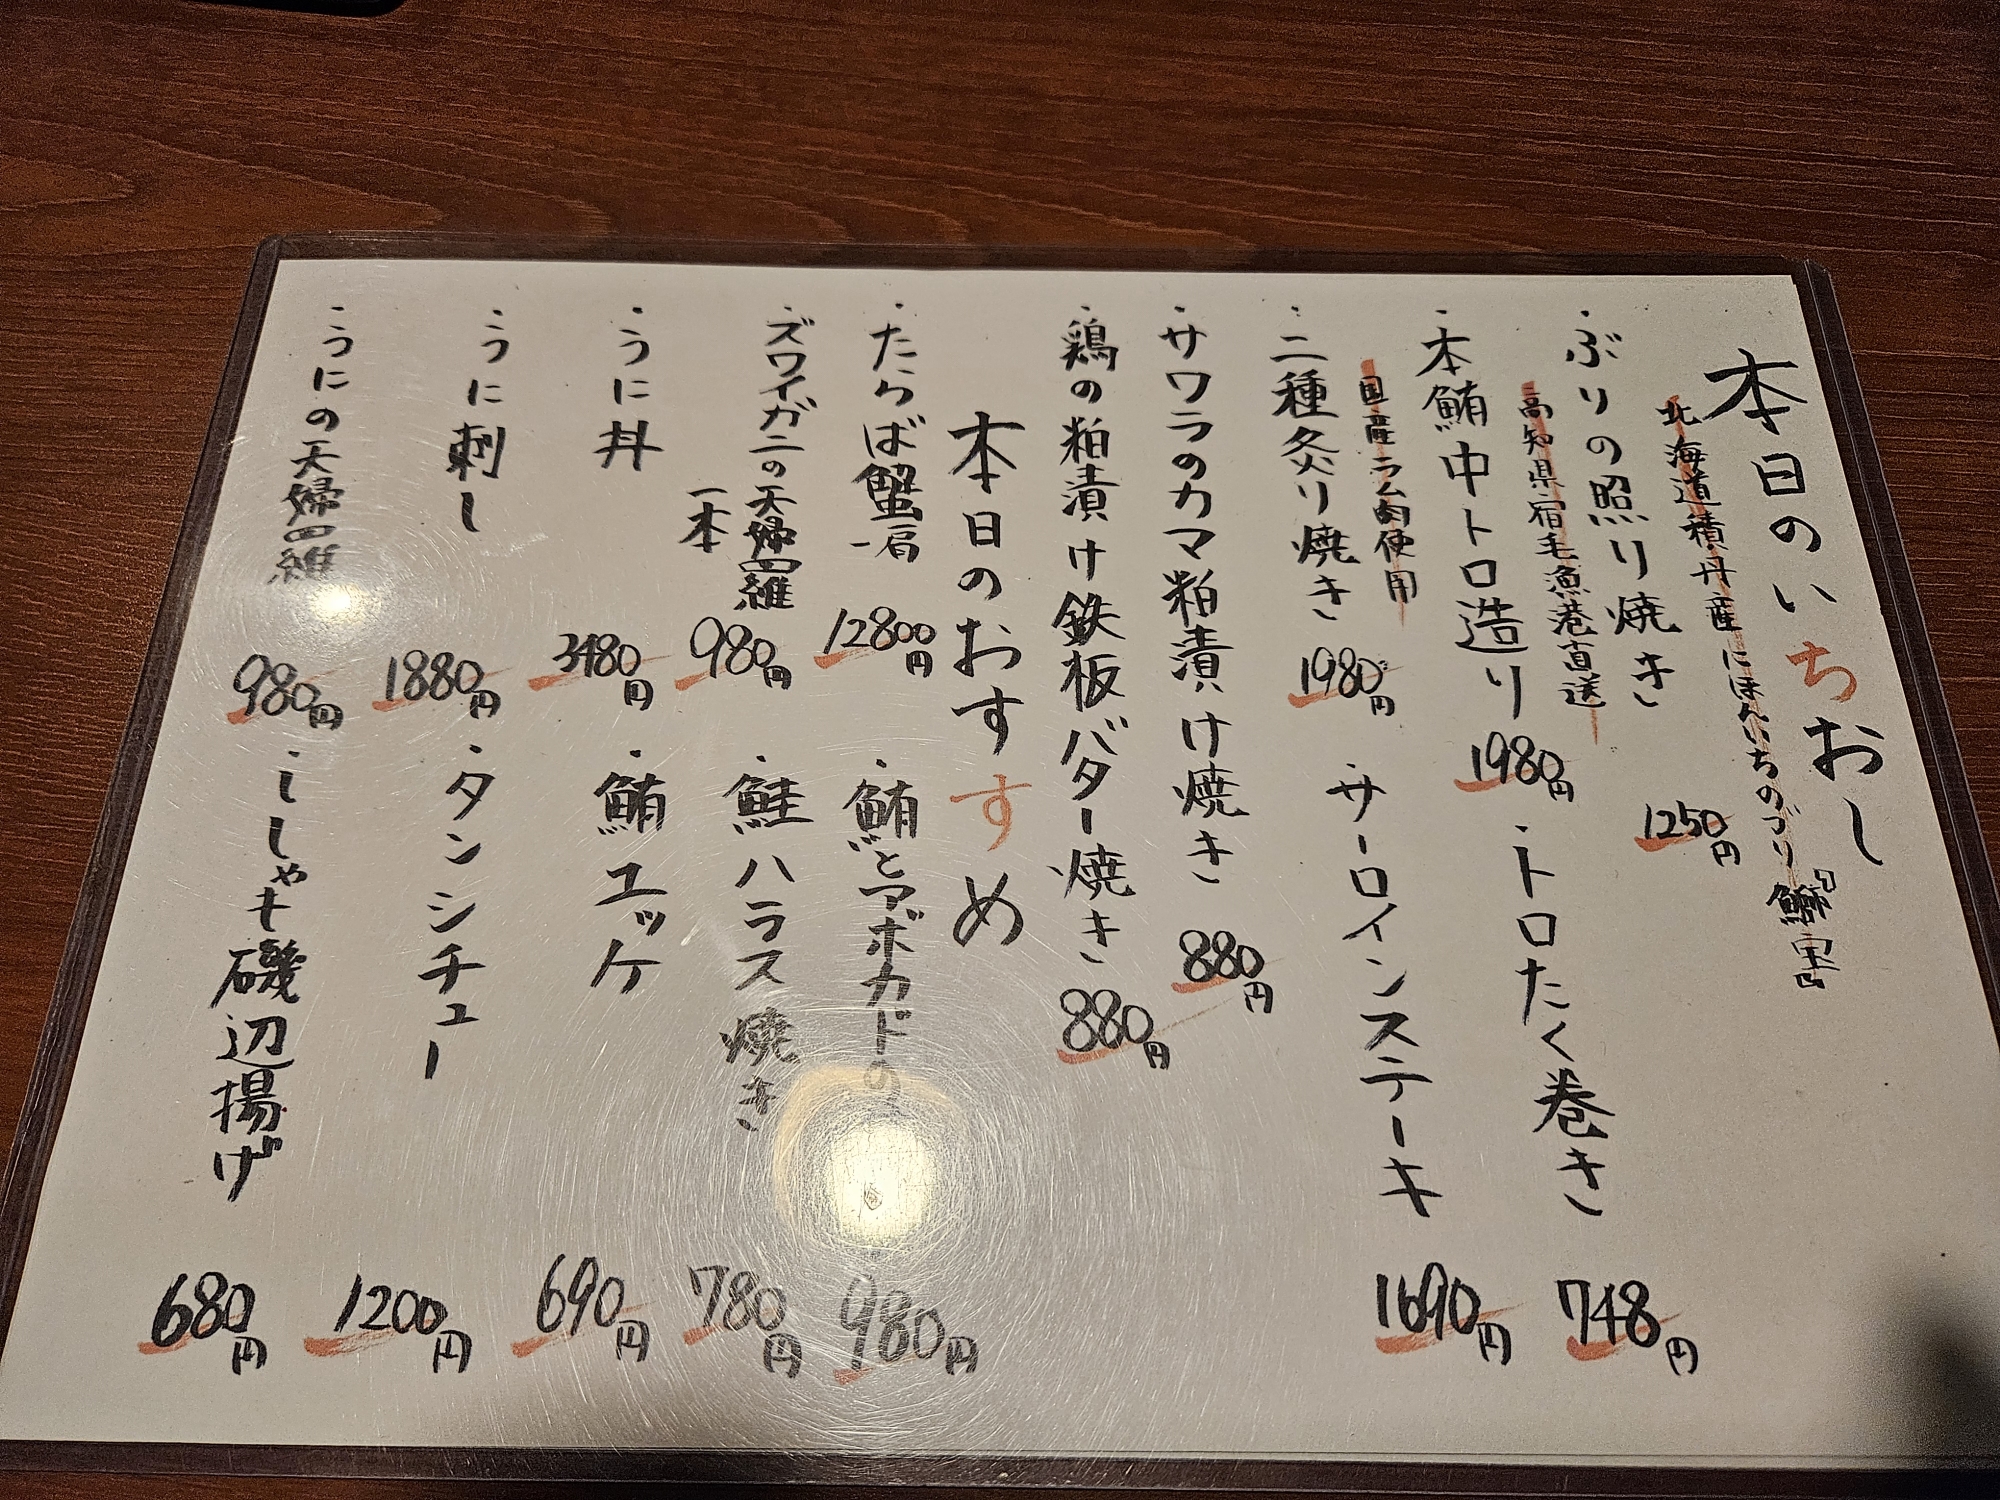 本日のいちおし
北海道積丹産 にほんいちのブリ 鰤宝
・ぶりの照り焼き 1250円
高知県宿毛漁港直送
・本鮪中トロ造り 1980円
・トロたく巻き 748円
国産ラム肉使用
・二種炙り焼き 1980円
・サーロインステーキ 1690円
・サワラのカマ粕漬け焼き 880円
・鶏の粕漬け鉄板バター焼き 880円
本日のおすすめ
・たらば蟹一肩 12800円
・鮪とアボカドの 980円
・ズワイガニの天婦羅 一本 980円
・鮭ハラス焼き 780円
・うに丼 3480円
・鮪ユッケ 690円
・うに刺し 1880円
・タンシチュー 1200円
・うにの天婦羅 980円
・ししゃも磯辺揚げ 680円